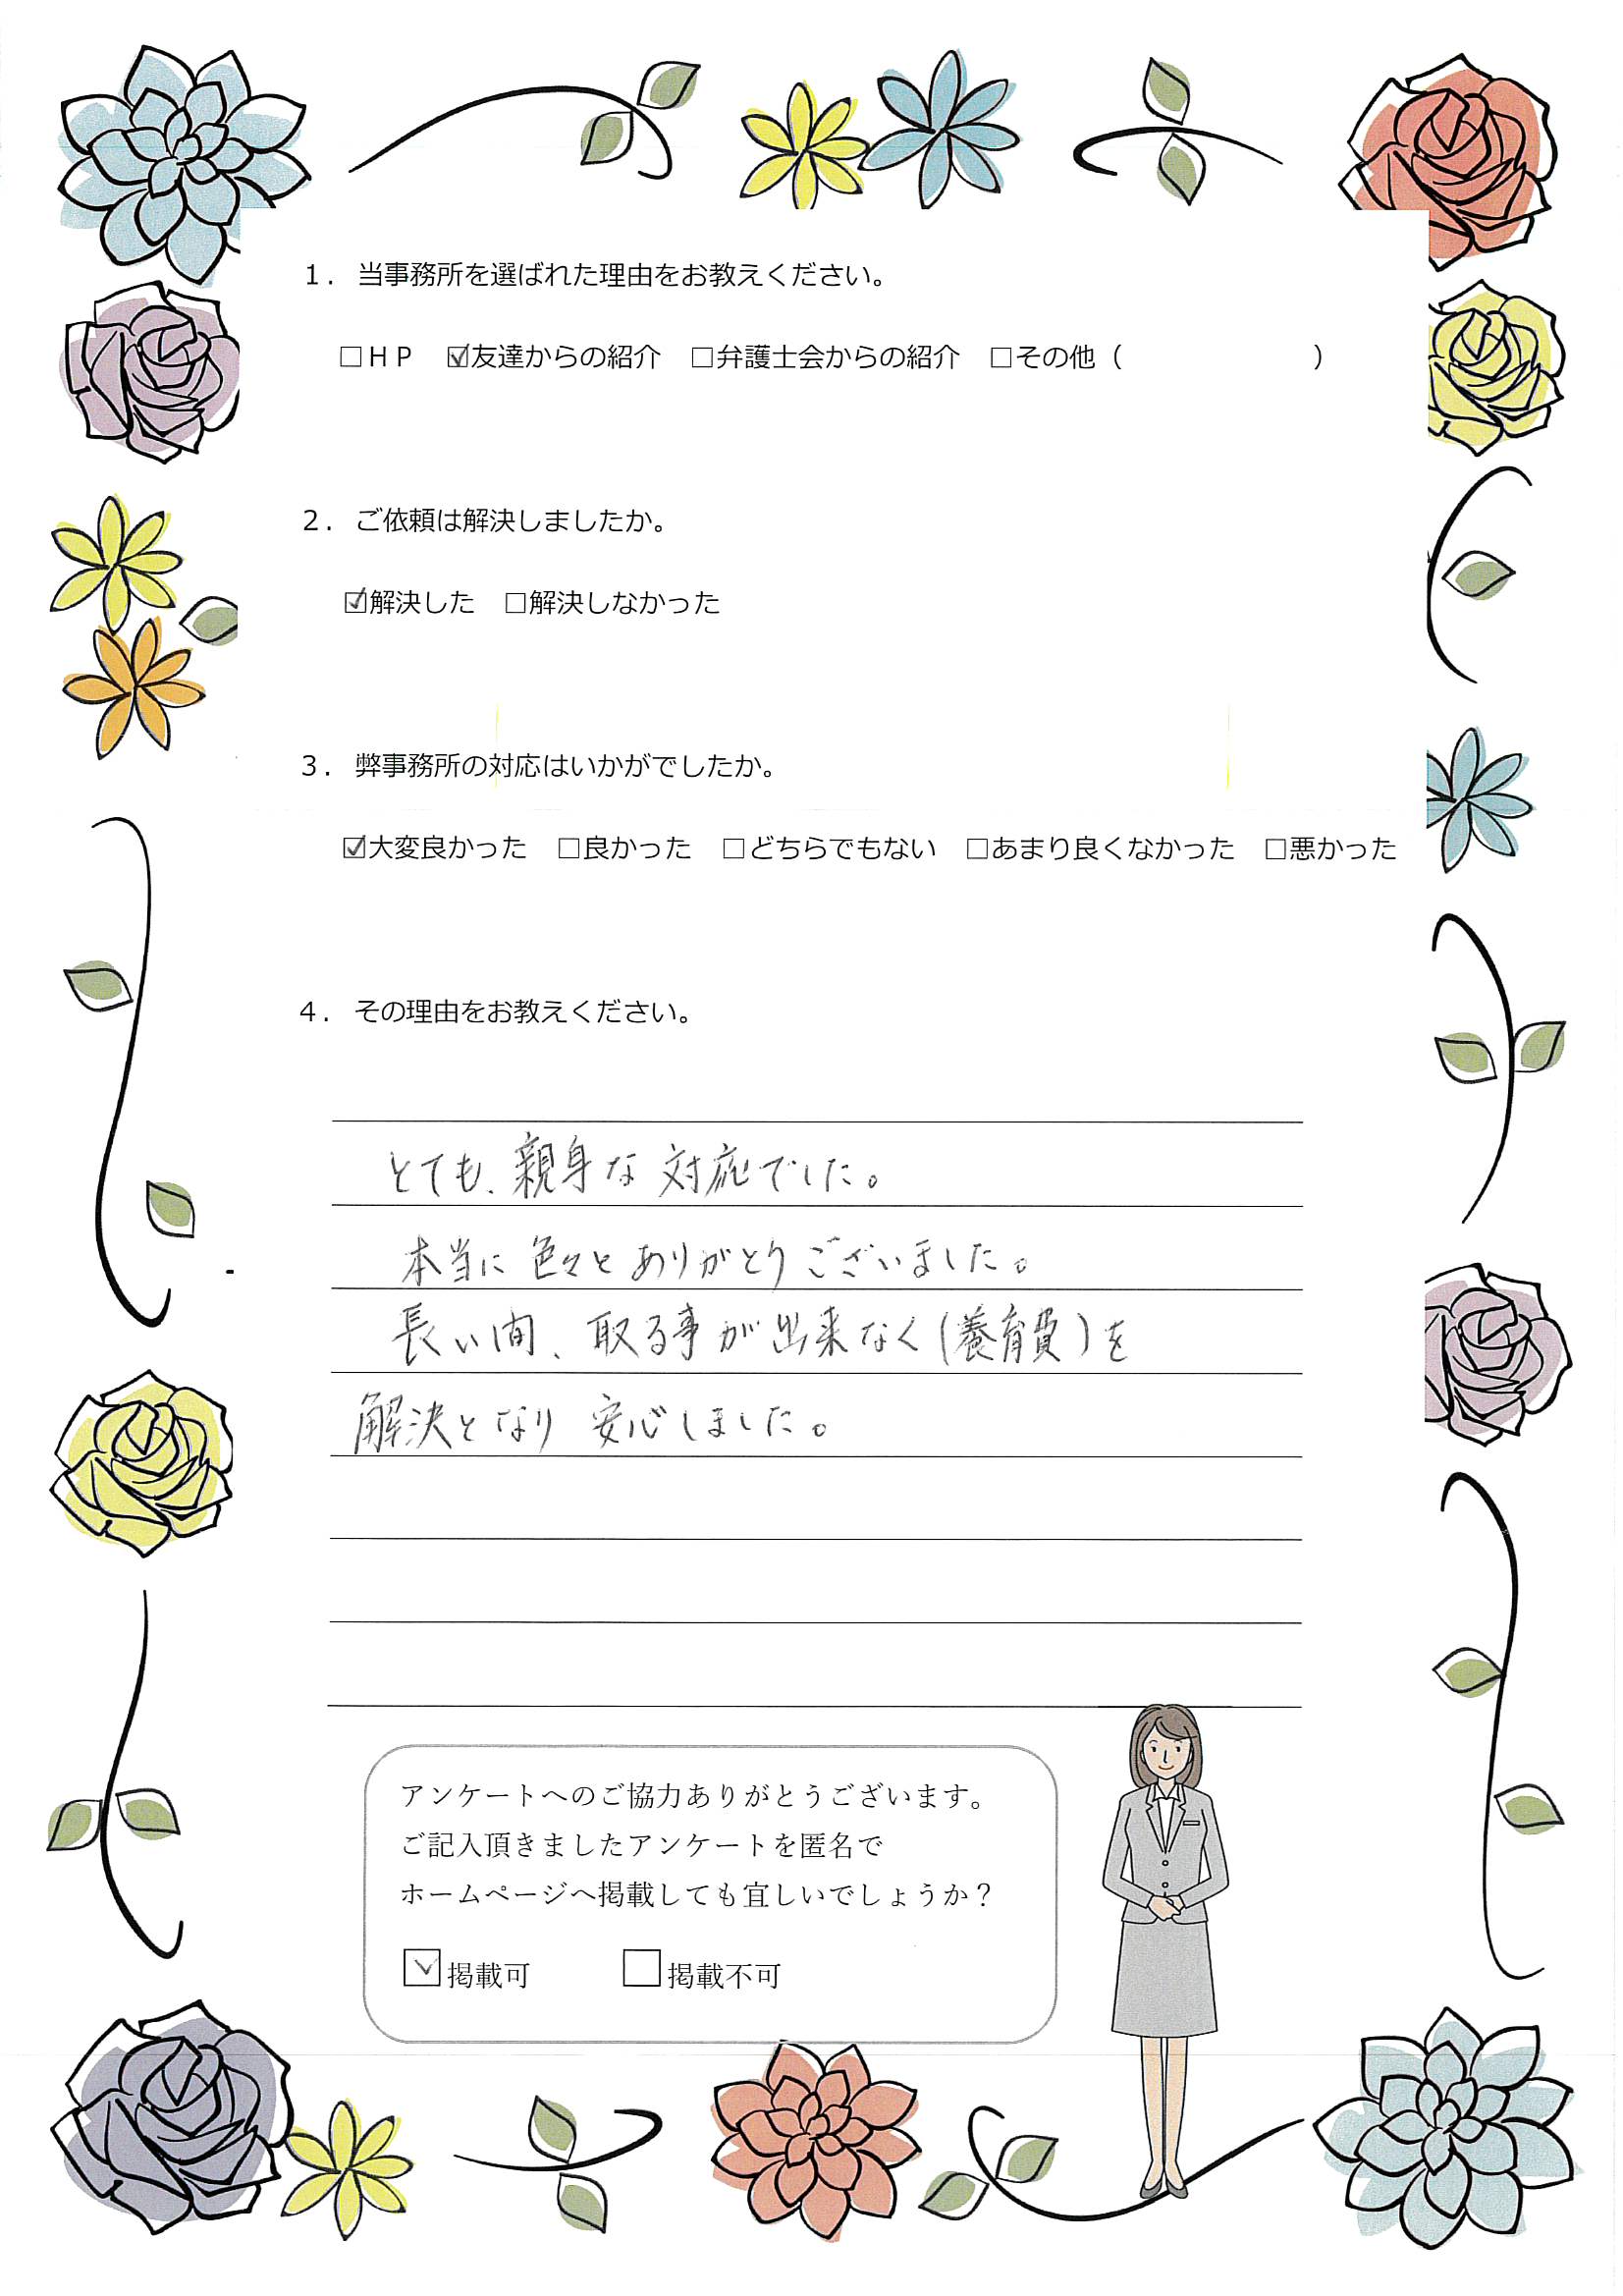 １． 当事務所を選ばれた理由をお教えください。
□ＨＰ ☑友達からの紹介 □弁護士会からの紹介 □その他（ ）
２． ご依頼は解決しましたか。
☑解決した □解決しなかった
３． 弊事務所の対応はいかがでしたか。
☑大変良かった □良かった □どちらでもない □あまり良くなかった □悪かった
４． その理由をお教えください。
とても、親身な対応でした。
本当に色々とありがとりございました。
長い間、取る事が出来なく(養育費)を
解決となり 安心しました。
アンケートへのご協力ありがとうございます。
ご記入頂きましたアンケートを匿名で
ホームページへ掲載しても宜しいでしょうか？
☑掲載可 □掲載不可